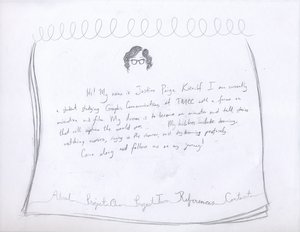 Hi! My name is Justine Paige I am currently
a student studying Graphic Communications at with a focus on
animation and film. My dream is to become an animator and tell stories
that will capture the world over. My hobbies include drawing,
watching movies, singing in the shower, and daydreaming profusely.
Come along and follow me on my journey!
About Project One Project Two References Contact